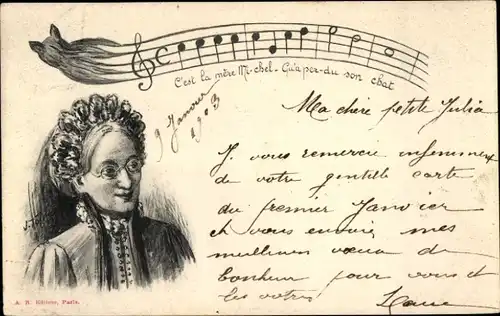 C'est la mère Mi-chel - Qu'a per-du son chat
9 Janvier
1903
Ma chère petite Julia
Je vous remercie infiniment
de votre gentille carte
du premier Janvier
et vous envoie mes
meilleurs vœux de
bonheur pour vous et
les vôtres
A. B. Editeur, Paris.